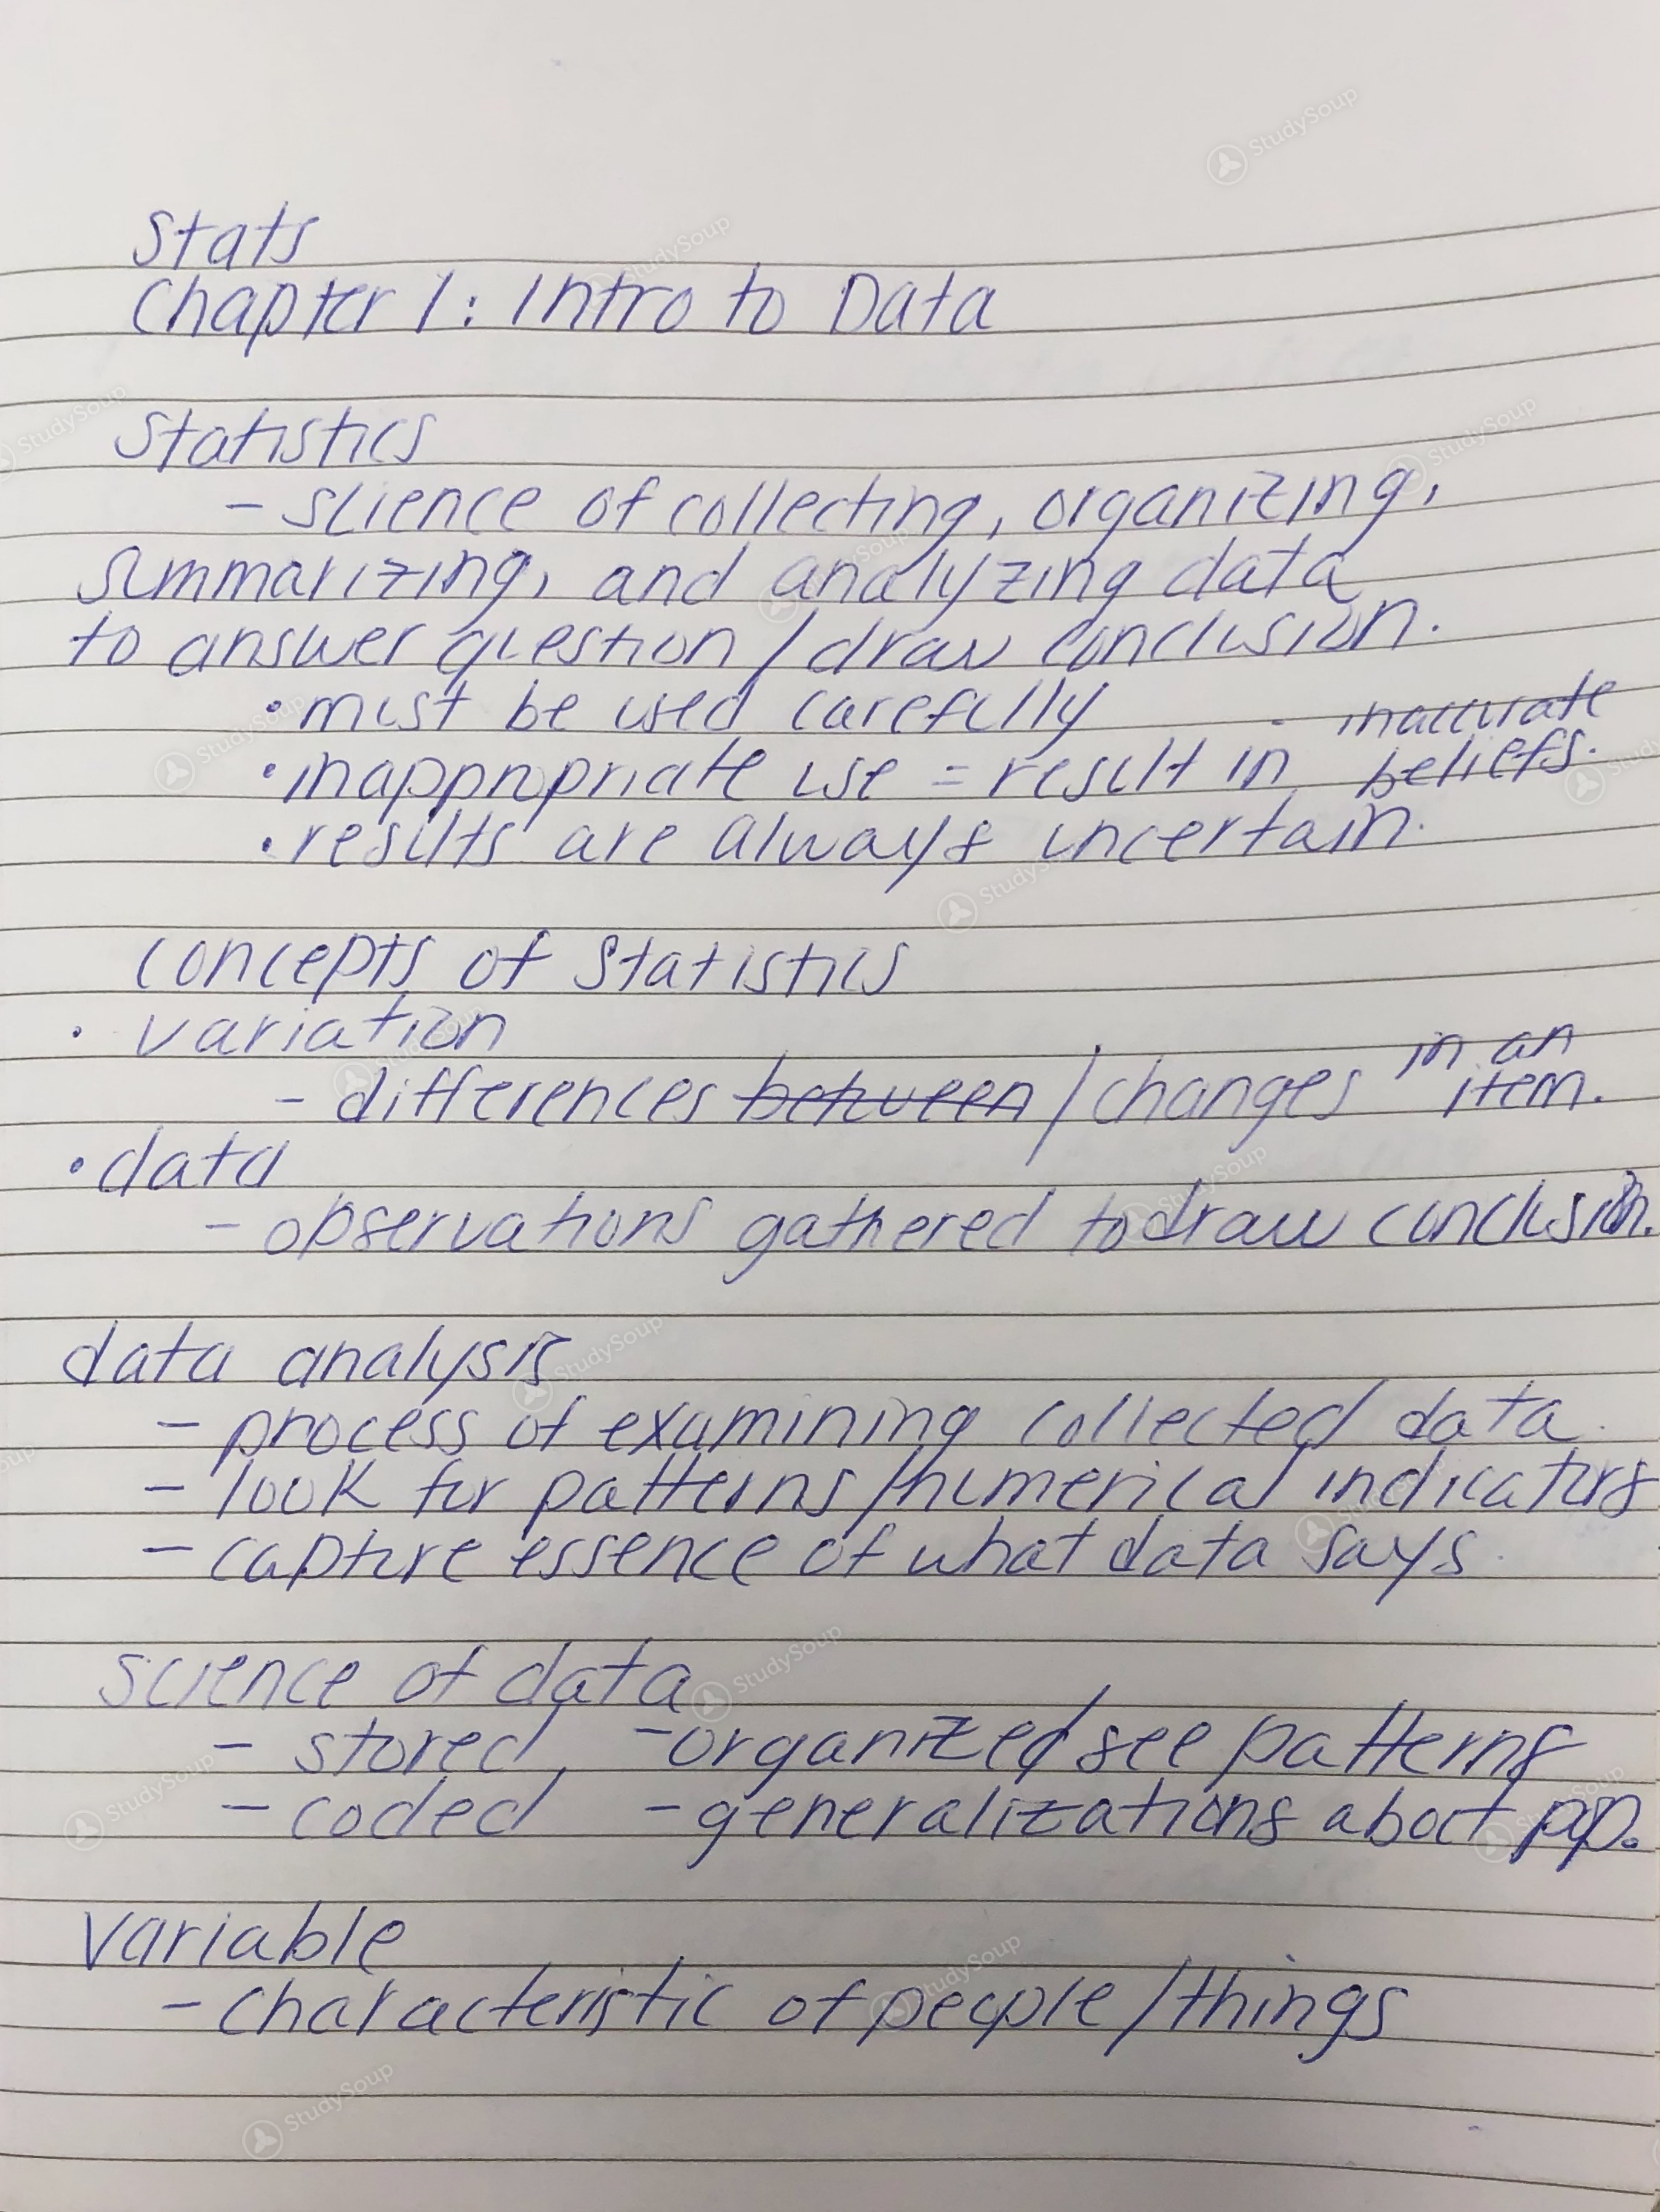 Stats
Chapter 1: Intro to Data
Statistics
- science of collecting, organizing,
summarizing, and analyzing data
to answer question/draw conclusion.
• must be used carefully
• inappropriate use = result in inaccurate beliefs.
• results are always uncertain.
Concepts of Statistics
• variation
- differences between/changes in an item.
• data
- observations gathered to draw conclusion.
data analysis
- process of examining collected data.
- look for patterns/numerical indicators
- capture essence of what data says.
science of data
- stored - organized/see patterns
- coded - generalizations about pop.
Variable
- characteristic of people/things
StudySoup
StudySoup
StudySoup
StudySoup
StudySoup
StudySoup
StudySoup
StudySoup
StudySoup
StudySoup
StudySoup
StudySoup
StudySoup